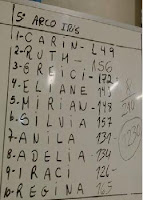 5º ARCO IRIS
1-CARIN- 149
2-RUTH-
3-GREICI- 156
4-ELIANE 172
5-MIRIAN-148
6-SILVIA 157
7-ANILA 131-
8-ADELIA-134
9-IRACI 126-
10-REGINA 165